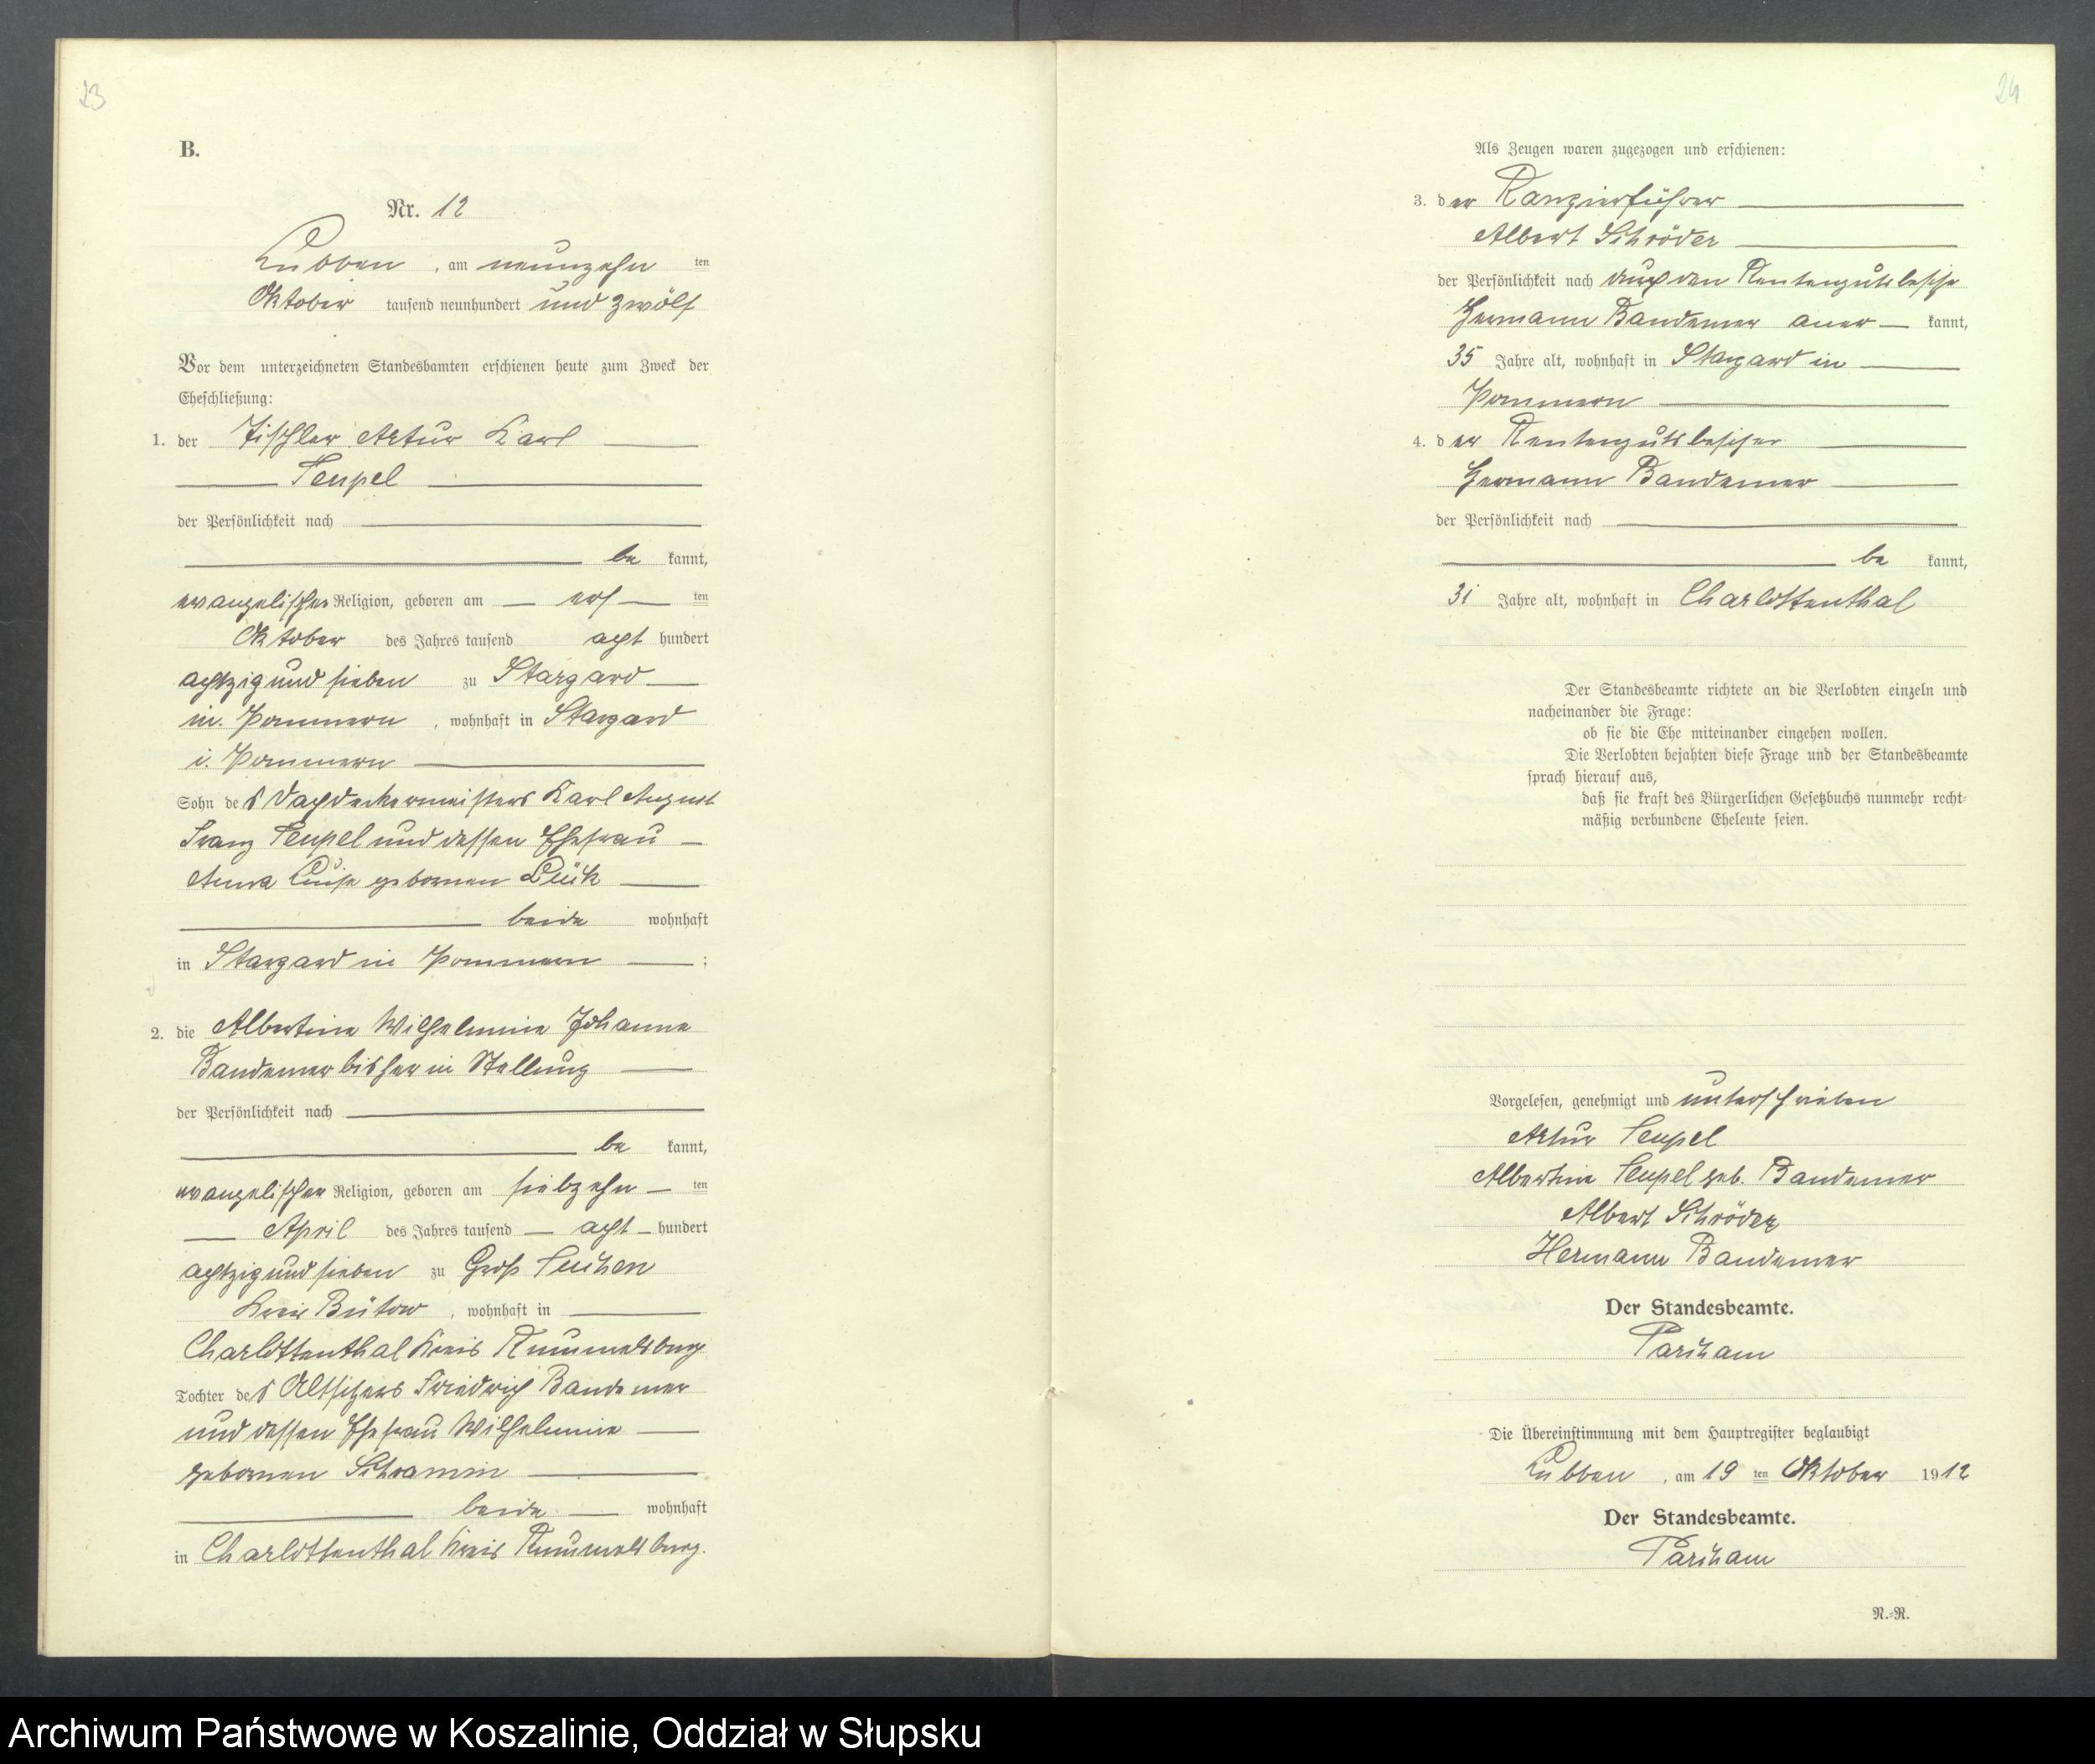 23
B.
Nr. 12
Lubben, am neunzehn ten
Oktober tausend neunhundert und zwölf
Vor dem unterzeichneten Standesbamten erschienen heute zum Zweck der
Eheschließung:
1. der Tischler Artur Karl
Teupel
der Persönlichkeit nach
be kannt,
evangelischer Religion, geboren am ten
Oktober des Jahres tausend acht hundert
achtzig und sieben zu Stargard
in Pommern, wohnhaft in Stargard
i. Pommern
Sohn des Dachdeckermeisters Karl August
Franz Teupel und dessen Ehefrau
Anna Luise gebornen Lück
beide wohnhaft
in Stargard in Pommern ;
2. die Albertine Wilhelmine Johanne
Bandemer bisher in Stellung
der Persönlichkeit nach
be kannt,
evangelischer Religion, geboren am siebzehn ten
April des Jahres tausend acht hundert
achtzig und sieben zu Groß Tuchen
Kreis Bütow, wohnhaft in
Charlottenthal Kreis Rummelsburg
Tochter des Altsitzers Friedrich Bandemer
und dessen Ehefrau Wilhelmine
gebornen Schramm
beide wohnhaft
in Charlottenthal Kreis Rummelsburg.
24
Als Zeugen waren zugezogen und erschienen:
3. der Rangierführer
Albert Schröder
der Persönlichkeit nach durch den Rentengutsbesitzer
Hermann Bandemer aner kannt,
35 Jahre alt, wohnhaft in Stargard in
Pommern
4. der Rentengutsbesitzer
Hermann Bandemer
der Persönlichkeit nach
be kannt,
31 Jahre alt, wohnhaft in Charlottenthal
Der Standesbeamte richtete an die Verlobten einzeln und
nacheinander die Frage:
ob sie die Ehe miteinander eingehen wollen.
Die Verlobten bejahten diese Frage und der Standesbeamte
sprach hierauf aus,
daß sie kraft des Bürgerlichen Gesetzbuchs nunmehr recht-
mäßig verbundene Eheleute seien.
Vorgelesen, genehmigt und unterschrieben
Artur Teupel
Albertine Teupel geb. Bandemer
Albert Schröder
Hermann Bandemer
Der Standesbeamte.
Parcham
Die Übereinstimmung mit dem Hauptregister beglaubigt
Lubben, am 19 ten Oktober 1912
Der Standesbeamte.
Parcham
N.-R.
Archiwum Państwowe w Koszalinie, Oddział w Słupsku